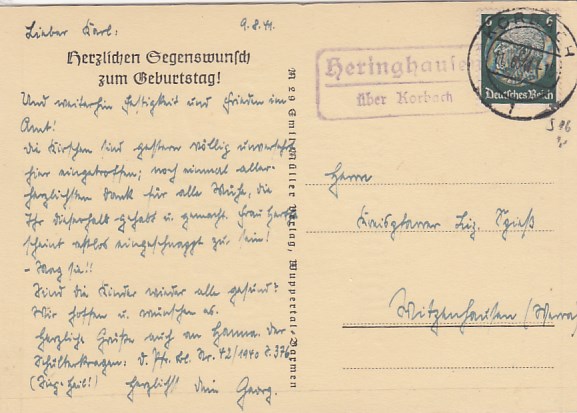 Lieber Karl:
9.8.41.
Herzlichen Segenswunsch
zum Geburtstag!
Und weiterhin Festigkeit und Frieden im
Amt!
Die Kirschen sind gestern völlig unversehrt
hier eingetroffen; noch einmal aller-
herzlichsten Dank für alle Mühe, die
Ihr dieserhalb gehabt u. gemacht. Frau
scheint restlos eingeschnappt zu sein!
- Mag sie!!
Sind die Kinder wieder alle gesund?
Wir hoffen u. wünschen es.
Herzliche Grüße auch an Hanna. der
Schulterkragen: V. Pfr. Bl. Nr. 42/1940 S. 376
(Sieg-Heil!) Herzlichst Dein Georg.
M 29 Emil Müller Verlag, Wuppertal-Barmen
Heringhausen
über Korbach
KORBACH
6 6
Deutsches Reich
Herrn
Kreispfarrer Liz. Spieß
Witzenhausen (Werra)